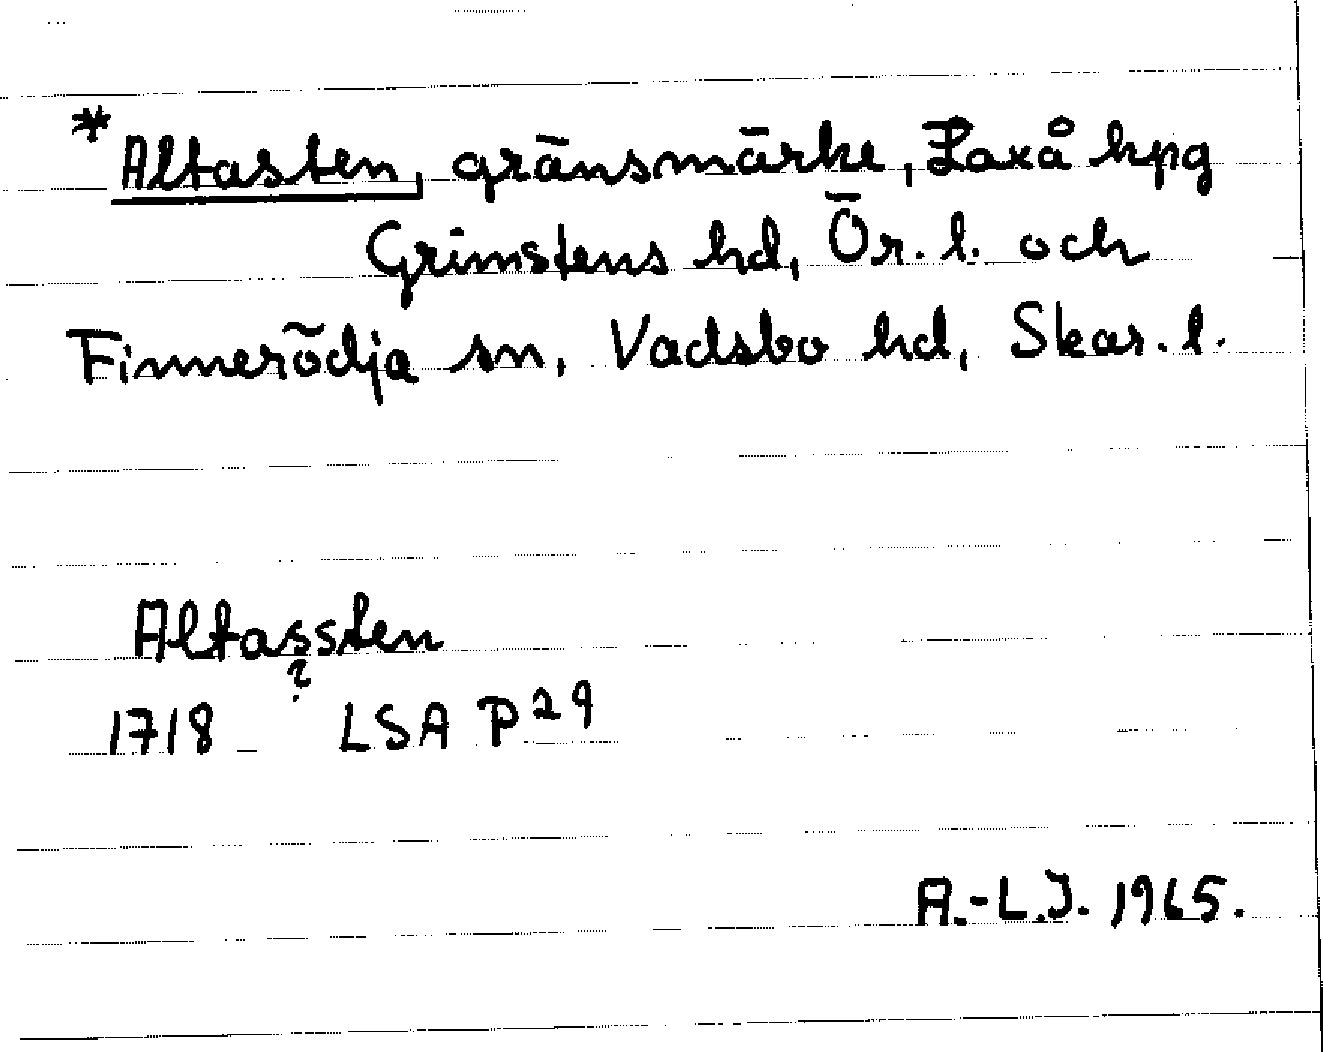 *Altasten, gränsmärke, Laxå kpg
Grimstens hd, Ör. l. och
Finnerödja sn, Vadsbo hd, Skar. l.
Altassten
?
1718 LSA P29
A.-L.J. 1965.